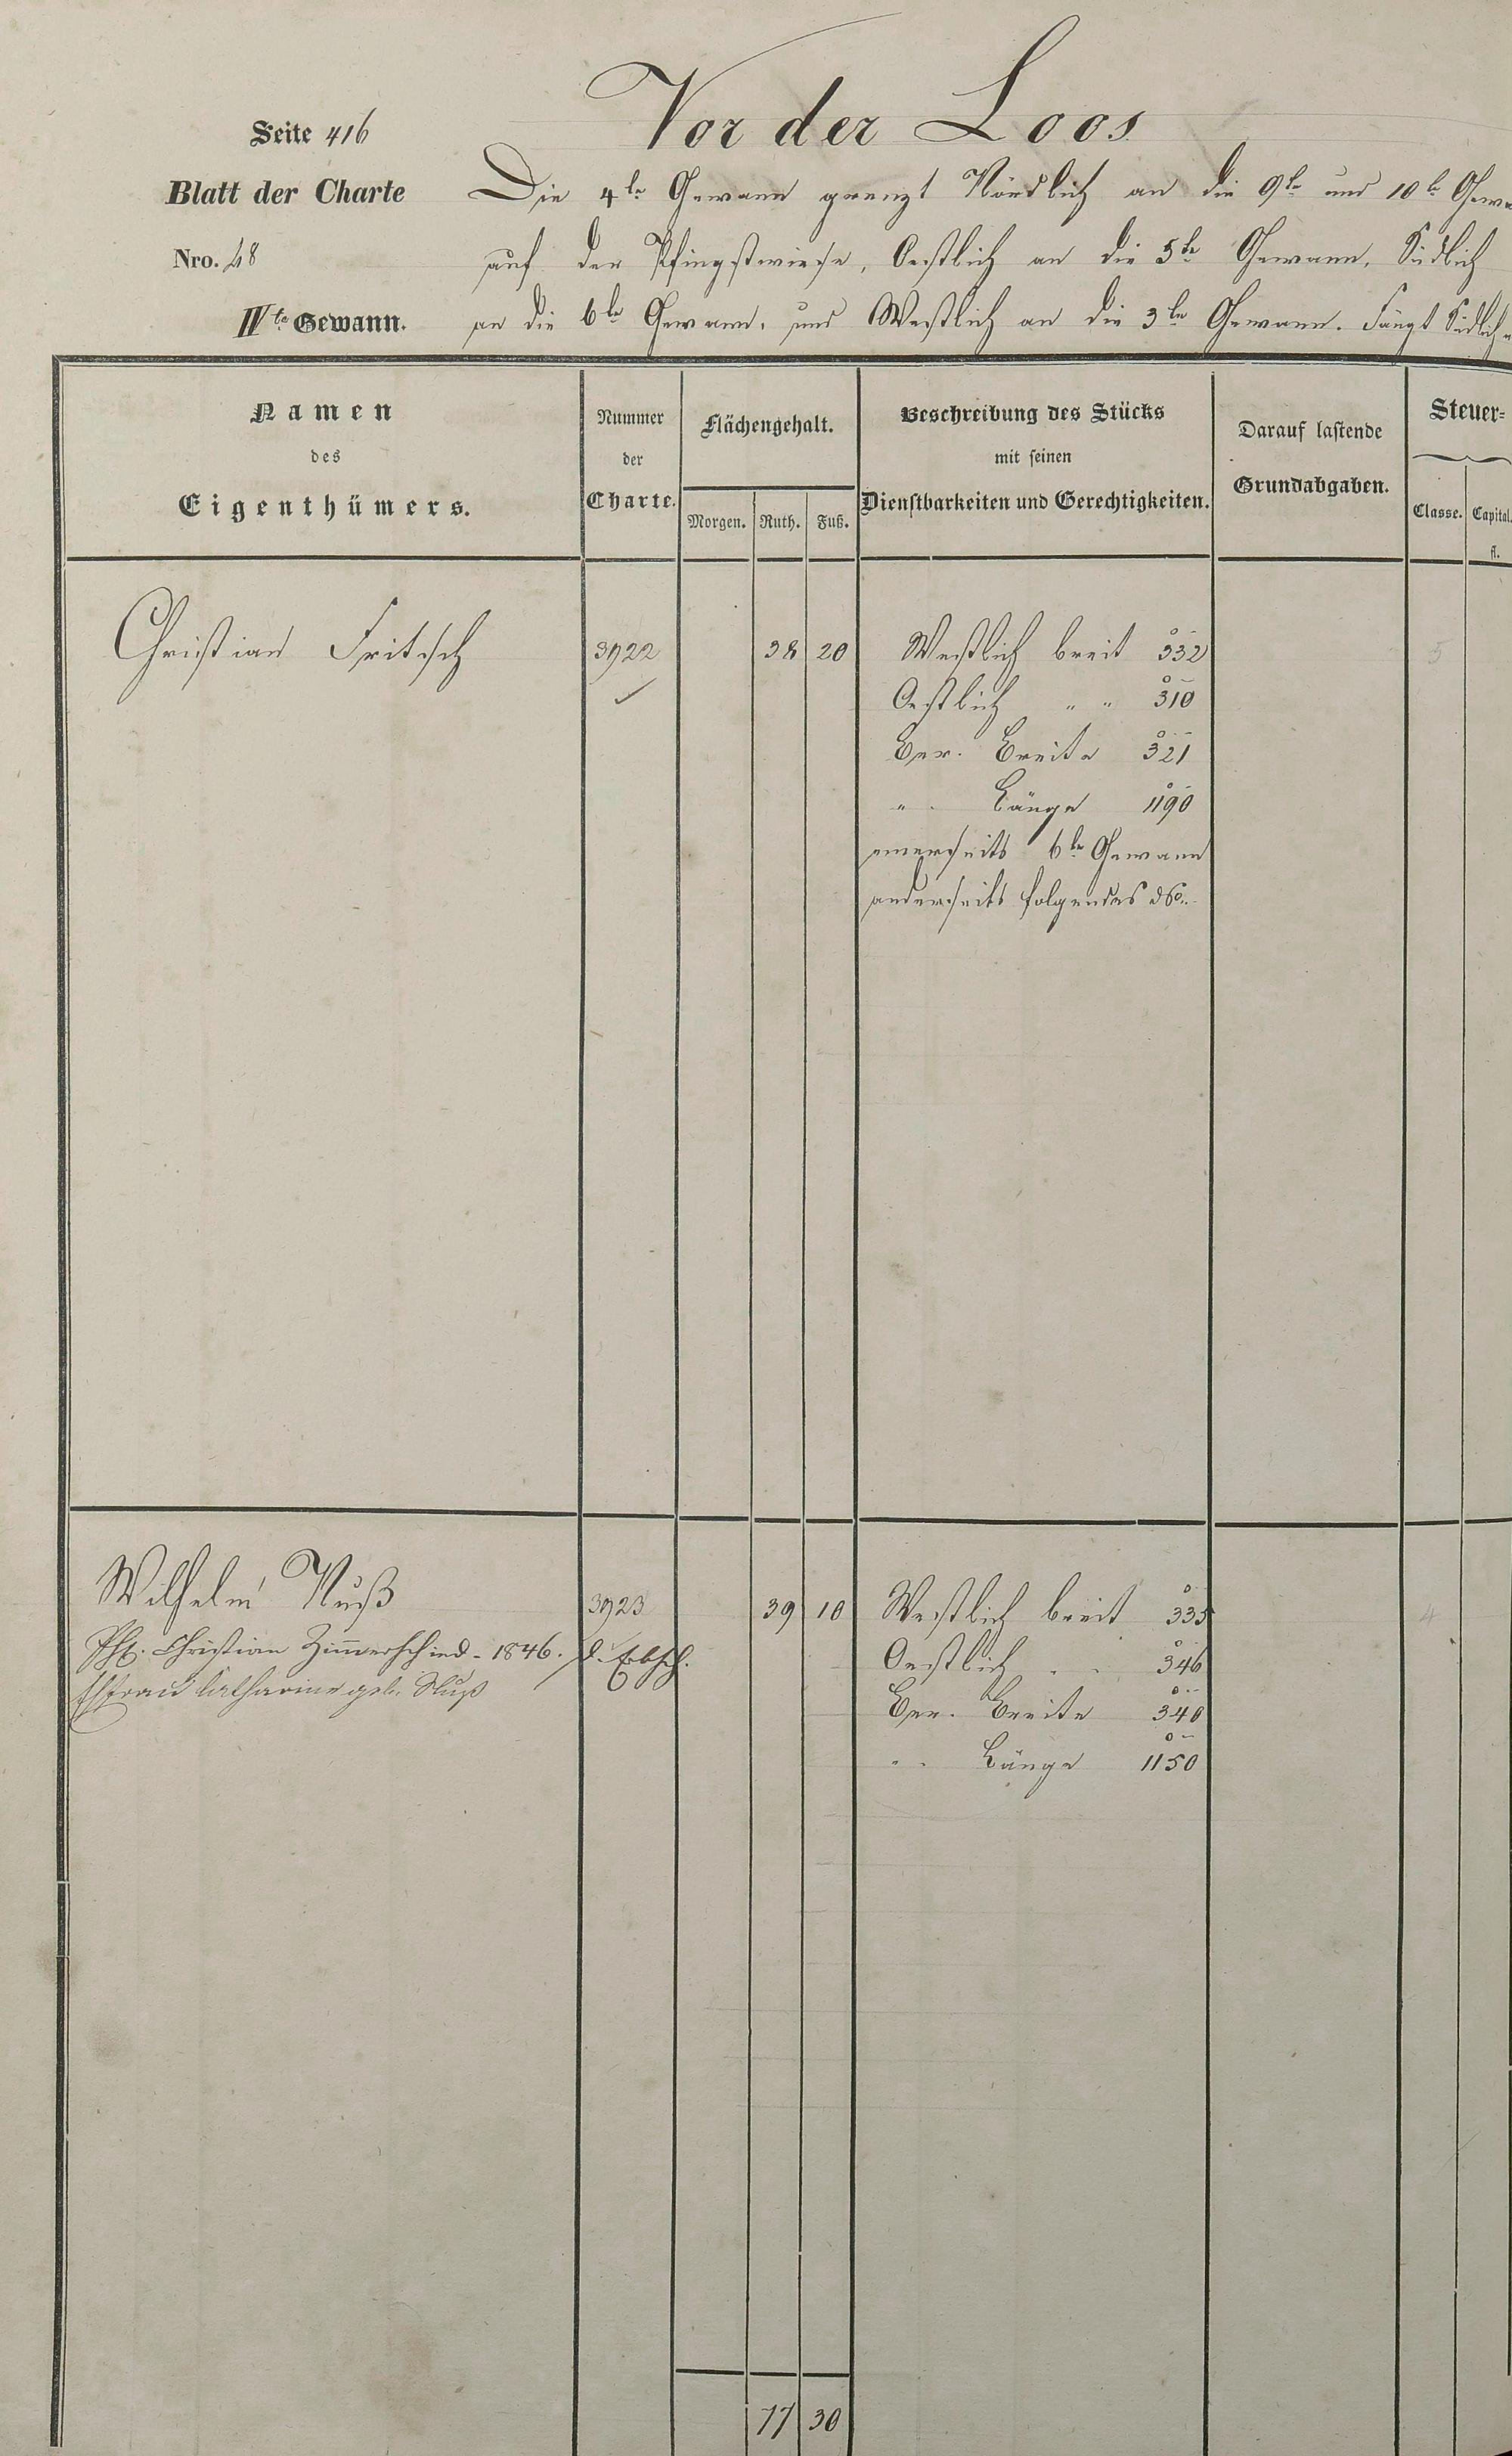 Vor der Loos
Seite 416
Blatt der Charte
Nro. 48
IVte Gewann.
Die 4te Gewann grenzt Nördlich an die 9te und 10te Gewa
auf der Pfingstwiese, Oestlich an die 5te Gewann, Südlich
an die 6te Gewann, und Westlich an die 3te Gewann. Fängt Südlich
Namen
des
Eigenthümers.
Nummer
der
Charte.
Flächengehalt.
Morgen. Ruth. Fuß.
Beschreibung des Stücks
mit seinen
Dienstbarkeiten und Gerechtigkeiten.
Darauf lastende
Grundabgaben.
Steuer-
Classe. Capital.
fl.
Christian Fritsch 3922 38 20 Westlich breit 332 5
Oestlich " " 310
Ber. Breite 321
" Länge 1190
einerseits 6te Gewann
anderseits folgendes
Wilhelm Nuß 3923 39 10 Westlich breit 335 4
Ph. Christian Zimerschied - 1846. d. Erbsch.
Ehfrau Catharine geb. Nuß
Oestlich " " 346
Ber. Breite 340
" Länge 1150
77 30